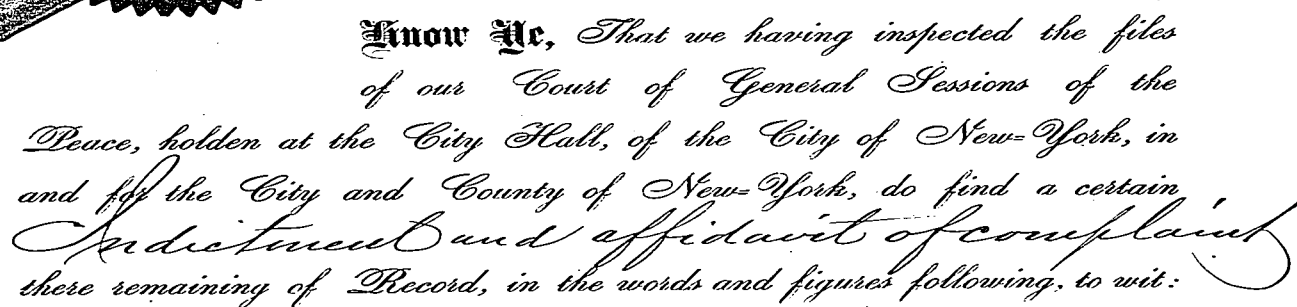 Know Ye, That we having inspected the files
of our Court of General Sessions of the
Peace, holden at the City Hall, of the City of New=York, in
and for the City and County of New=York, do find a certain
Indictment and affidavit of complaint
there remaining of Record, in the words and figures following, to wit: